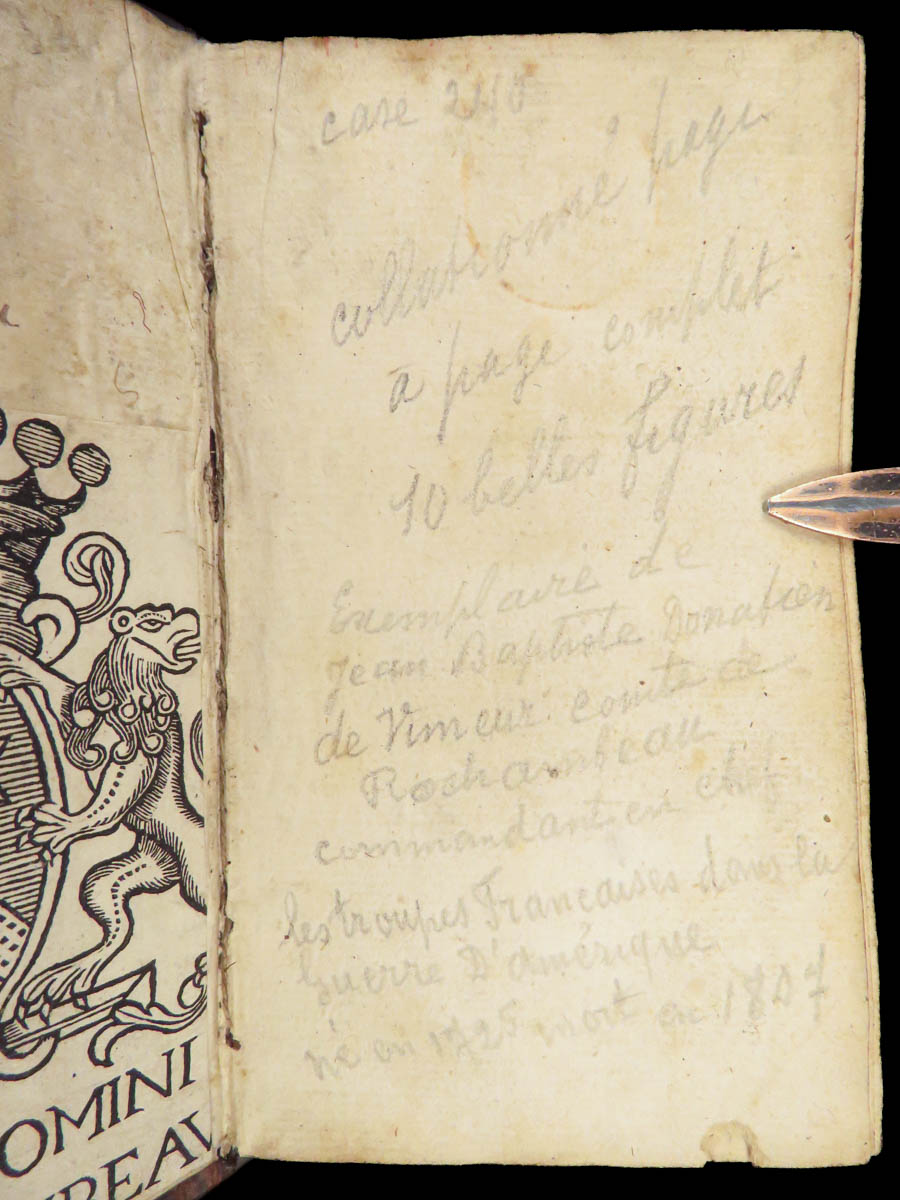 case
collationné page
à page complet
10 belles figures
Exemplaire de
Jean Baptiste Donatien
de Vimeur comte de
Rochambeau
commandant en chef
les troupes Françaises dans la
Guerre D'amérique
né en 1725 mort en 1807
OMINI